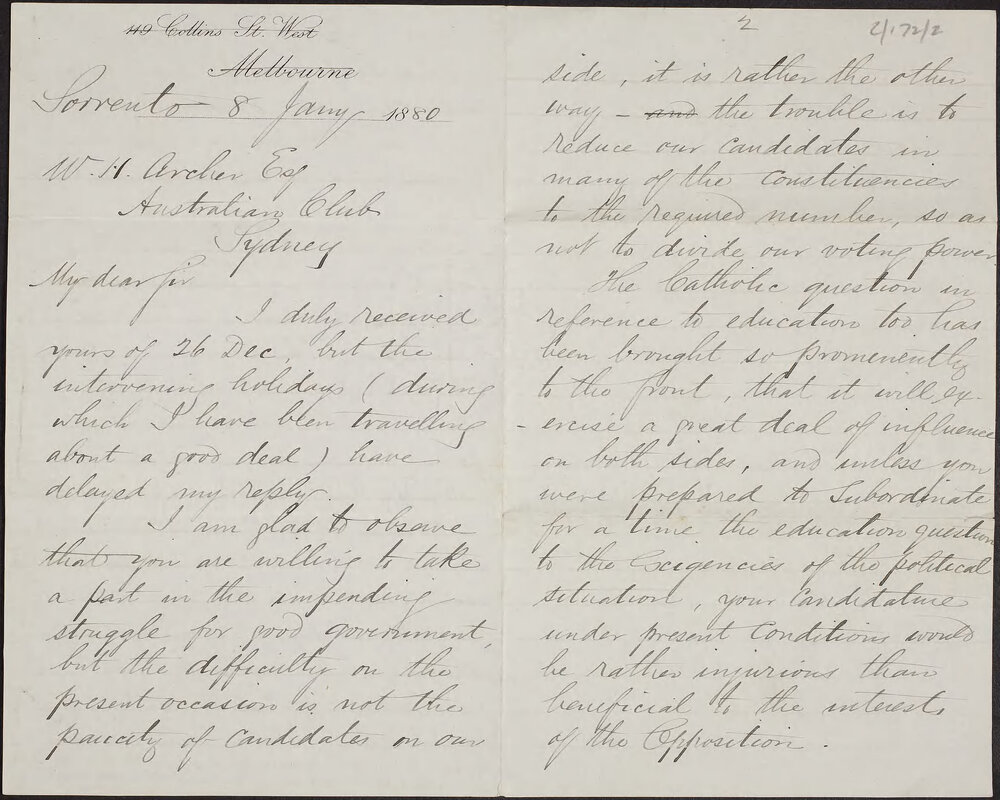 49 Collins St. West
Melbourne
Sorrento 8 Jany 1880
W. H. Archer Esq
Australian Club
Sydney
My dear Sir
I duly received
yours of 26 Dec, but the
intervening holidays (during
which I have been travelling
about a good deal) have
delayed my reply.
I am glad to observe
that you are willing to take
a part in the impending
struggle for good government,
but the difficulty on the
present occasion is not the
paucity of candidates on our
2
2/172/2
side, it is rather the other
way - and the trouble is to
reduce our candidates in
many of the constituencies
to the required number, so as
not to divide our voting power
The Catholic question in
reference to education too has
been brought so prominently
to the front, that it will ex-
-ercise a great deal of influence
on both sides, and unless you
were prepared to subordinate
for a time the education question
to the Exigencies of the political
situation, your candidature
under present conditions would
be rather injurious than
beneficial to the interests
of the Opposition.